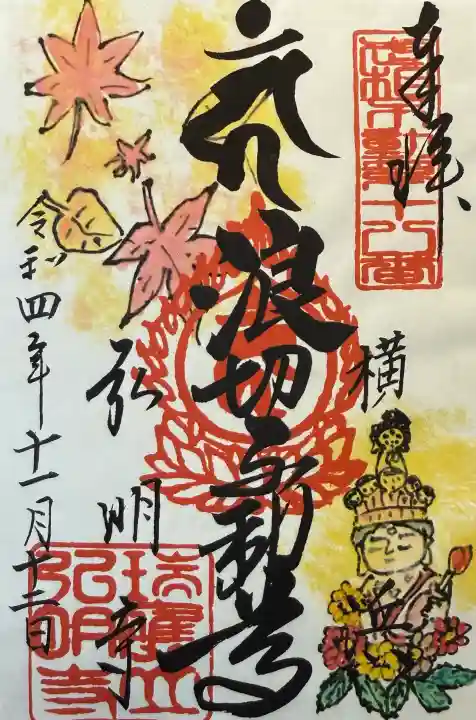 奉拝
横
浪切不動尊
弘明寺
令和四年十一月十二日
瑞應山
弘明寺